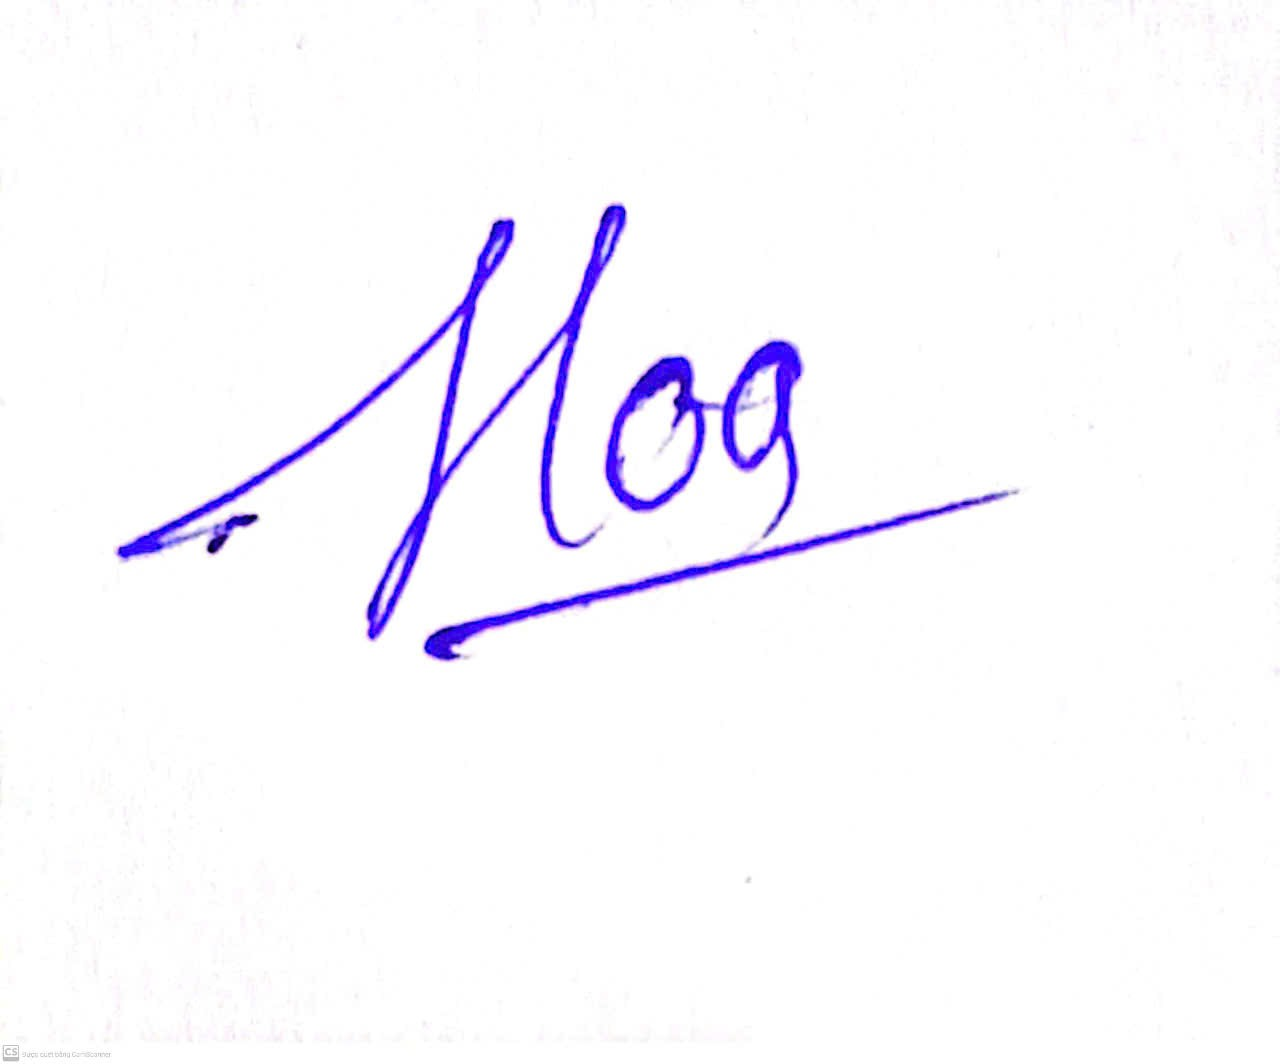 Hoa
CS Được quét bằng CamScanner